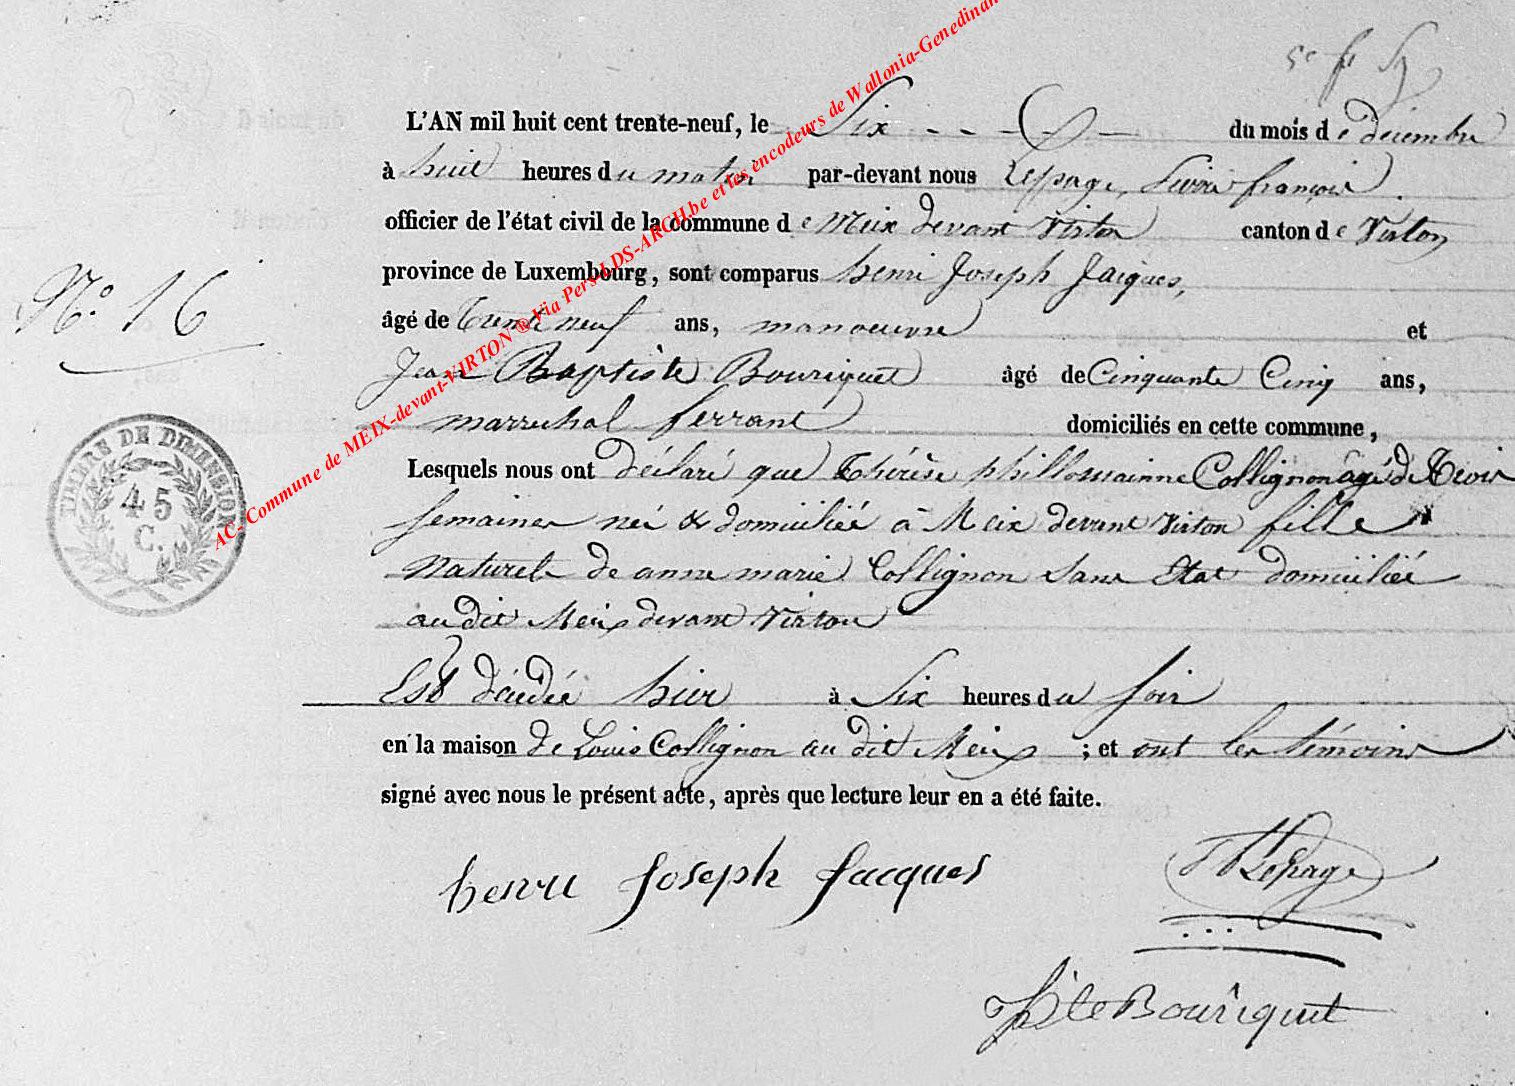 L'AN mil huit cent trente-neuf, le Six du mois de décembre
à huit heures du matin par-devant nous Lepage, françois
officier de l'état civil de la commune de Meix devant Virton canton de Virton
province de Luxembourg, sont comparus henri Joseph Jacques,
N.° 16
âgé de trente neuf ans, manoeuvre et
Jean Baptiste Bouriquet âgé de Cinquante Cinq ans,
marrechal ferrant domiciliés en cette commune,
Lesquels nous ont déclaré que thérèse phillomainne Collignon âgé de trois
semaines née & domiciliée à Meix devant Virton fille
Naturele de anne marie Collignon sans Etat domiciliée
au dit Meix devant Virton
Est décédée hier à Six heures du soir
en la maison de Louis Collignon au dit Meix ; et ont les témoins
signé avec nous le présent acte, après que lecture leur en a été faite.
TIMBRE DE DIMENSION
45
C.
henri Joseph Jacques
Lepage
Bouriquet
AC Commune de MEIX-devant-VIRTON ® Via Pers-LDS-ARCH.be et les encodeurs de Wallonia-Genedinan